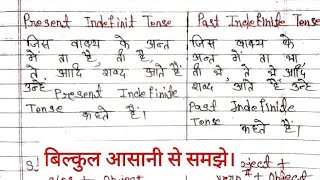 Present Indefinit Tense
जिस वाक्य के अन्त
में ता है, ती है,
ते आदि शब्द आते हैं
उन्हें Present Indefinite
Tense कहते हैं।
Past Indefinite Tense
जिस वाक्य के
अन्त में ता था
ती थी, ते थे आदि
शब्द आते हैं उन्हें
Past Indefinite
Tense कहते हैं।
बिल्कुल आसानी से समझे।